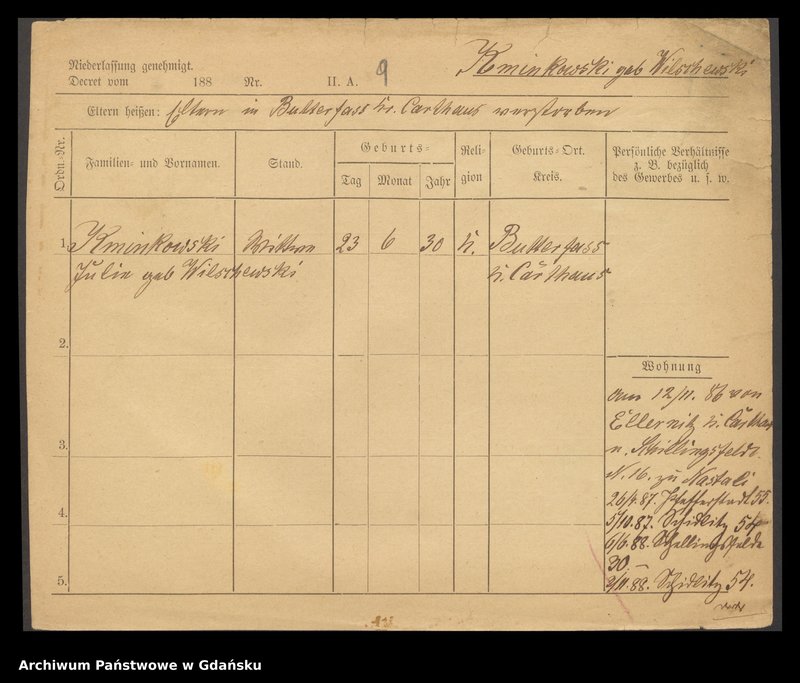 Kminkowski geb Wilschewski
Niederlassung genehmigt.
Decret vom 188 Nr. II. A. 9
Eltern heißen: Eltern in Butterfass Kr. Carthaus verstorben
Ordn.=Nr.
Familien= und Vornamen.
Stand.
Geburts=
Tag
Monat
Jahr
Reli=
gion
Geburts=Ort.
Kreis.
Persönliche Verhältnisse
z. B. bezüglich
des Gewerbes u. s. w.
1. Kminkowski Wittwe 23 6 30 k. Butterfass
Julie geb Wilschewski Kr. Carthaus
2.
3.
4.
5.
Wohnung
am 12/11. 86 von
Ellernitz Kr. Carthaus
n. Schillingsfelde
N. 16. zu Nastali
26/4. 87. Pfefferstadt 55.
5/10. 87. Schidlitz 54
6/6. 88. Schellingsfelde
30.
2/11. 88. Schidlitz 54.
Archiwum Państwowe w Gdańsku